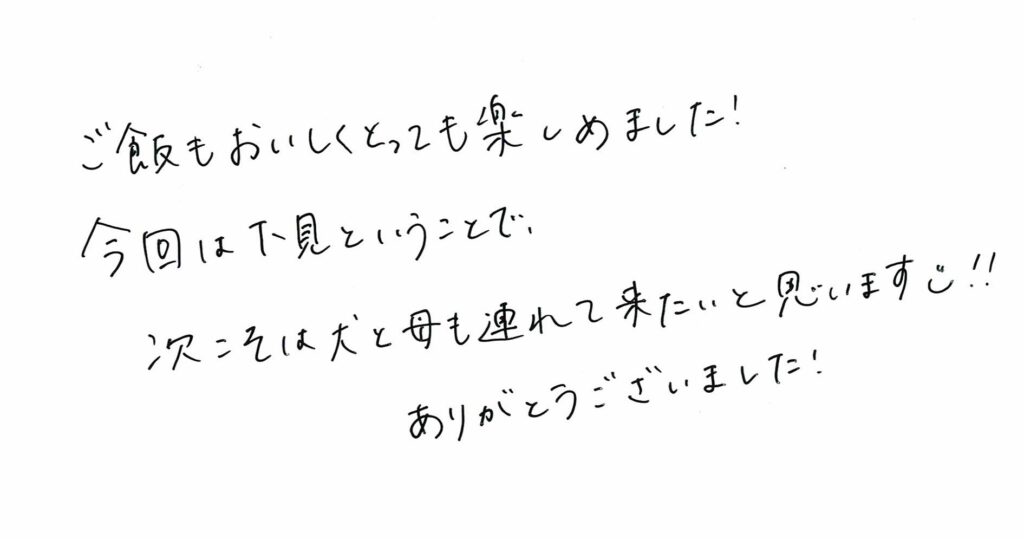 ご飯もおいしくとっても楽しめました!
今回は下見ということで、
次こそは犬と母も連れて来たいと思います!!
ありがとうございました!